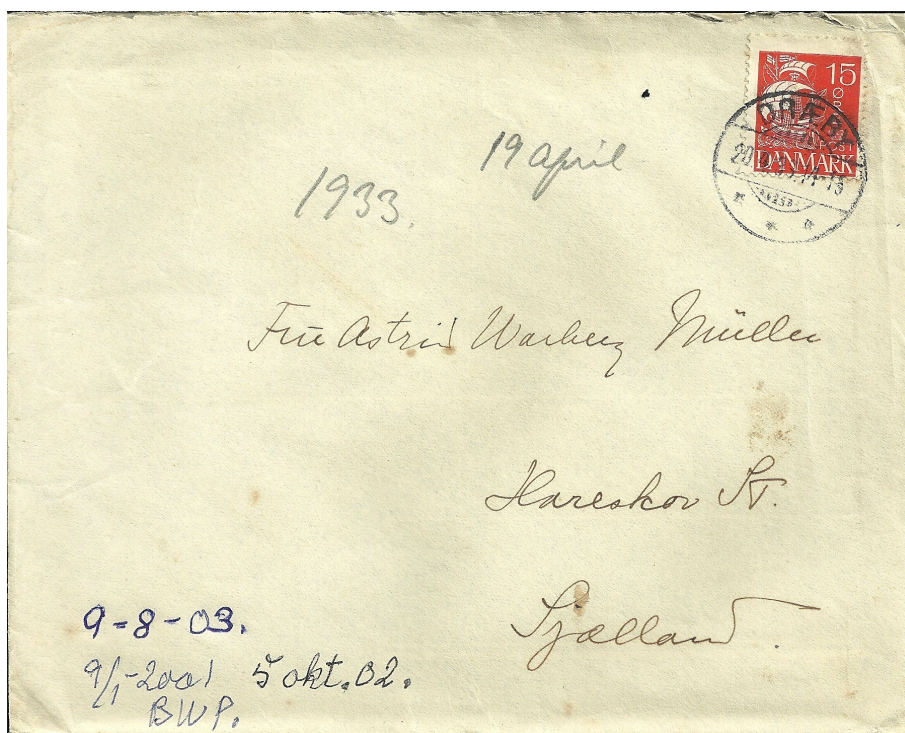 15
ØRE
POST
DANMARK
DRÆBY
20.4.33.11-13
19 april
1933.
Frue Astrid Warberg Müller
Hareskov St.
Sjælland.
9-8-03.
9/1-2001 5 okt. 02.
BWP.